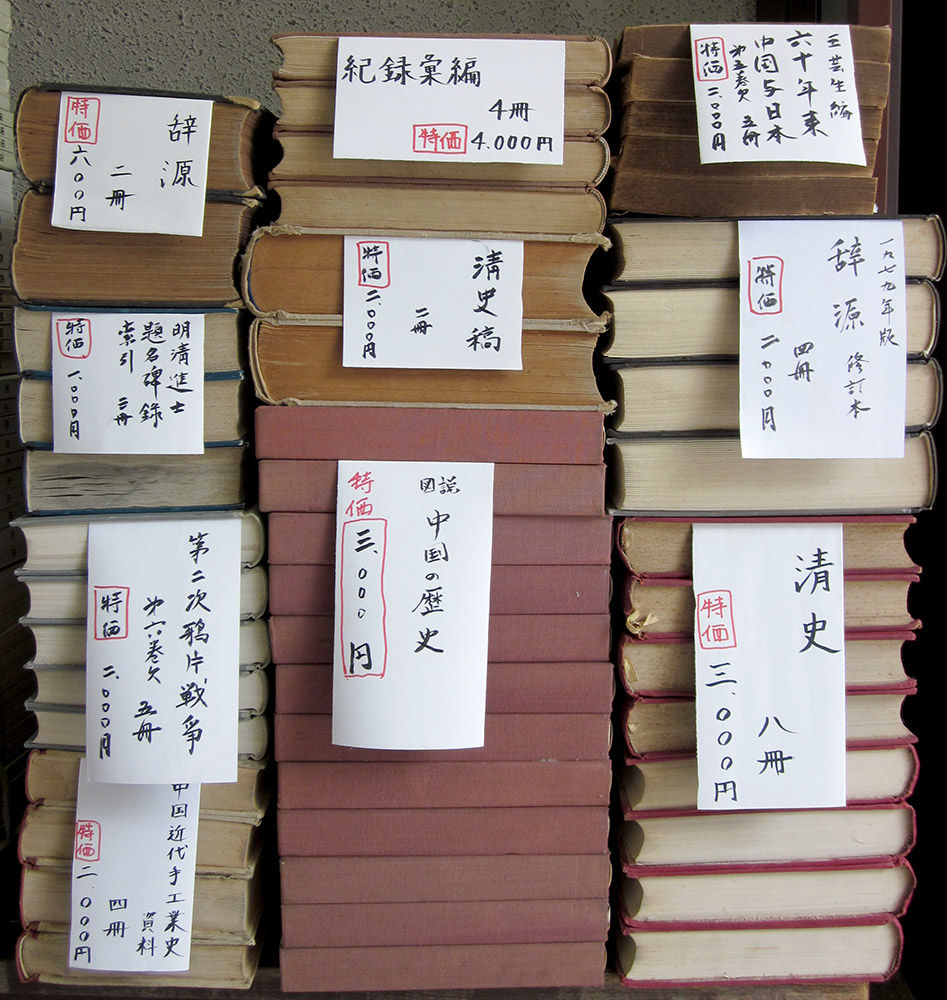 辞源
二冊
特価
六〇〇円
紀録彙編
4冊
特価 4.000円
王芸生編
六十年来
中国与日本
第五巻欠 五冊
特価 二.〇〇〇円
清史稿
二冊
特価 二.〇〇〇円
一九七九年版
辞源 修訂本
四冊
特価 二.〇〇〇円
明清進士
題名碑録
索引 三冊
特価 一.〇〇〇円
図説
中国の歴史
特価 三.〇〇〇円
第二次鴉片戦争
第六巻欠 五冊
特価 二.〇〇〇円
清史
八冊
特価 三.〇〇〇円
中国近代手工業史
資料
四冊
特価 二.〇〇〇円